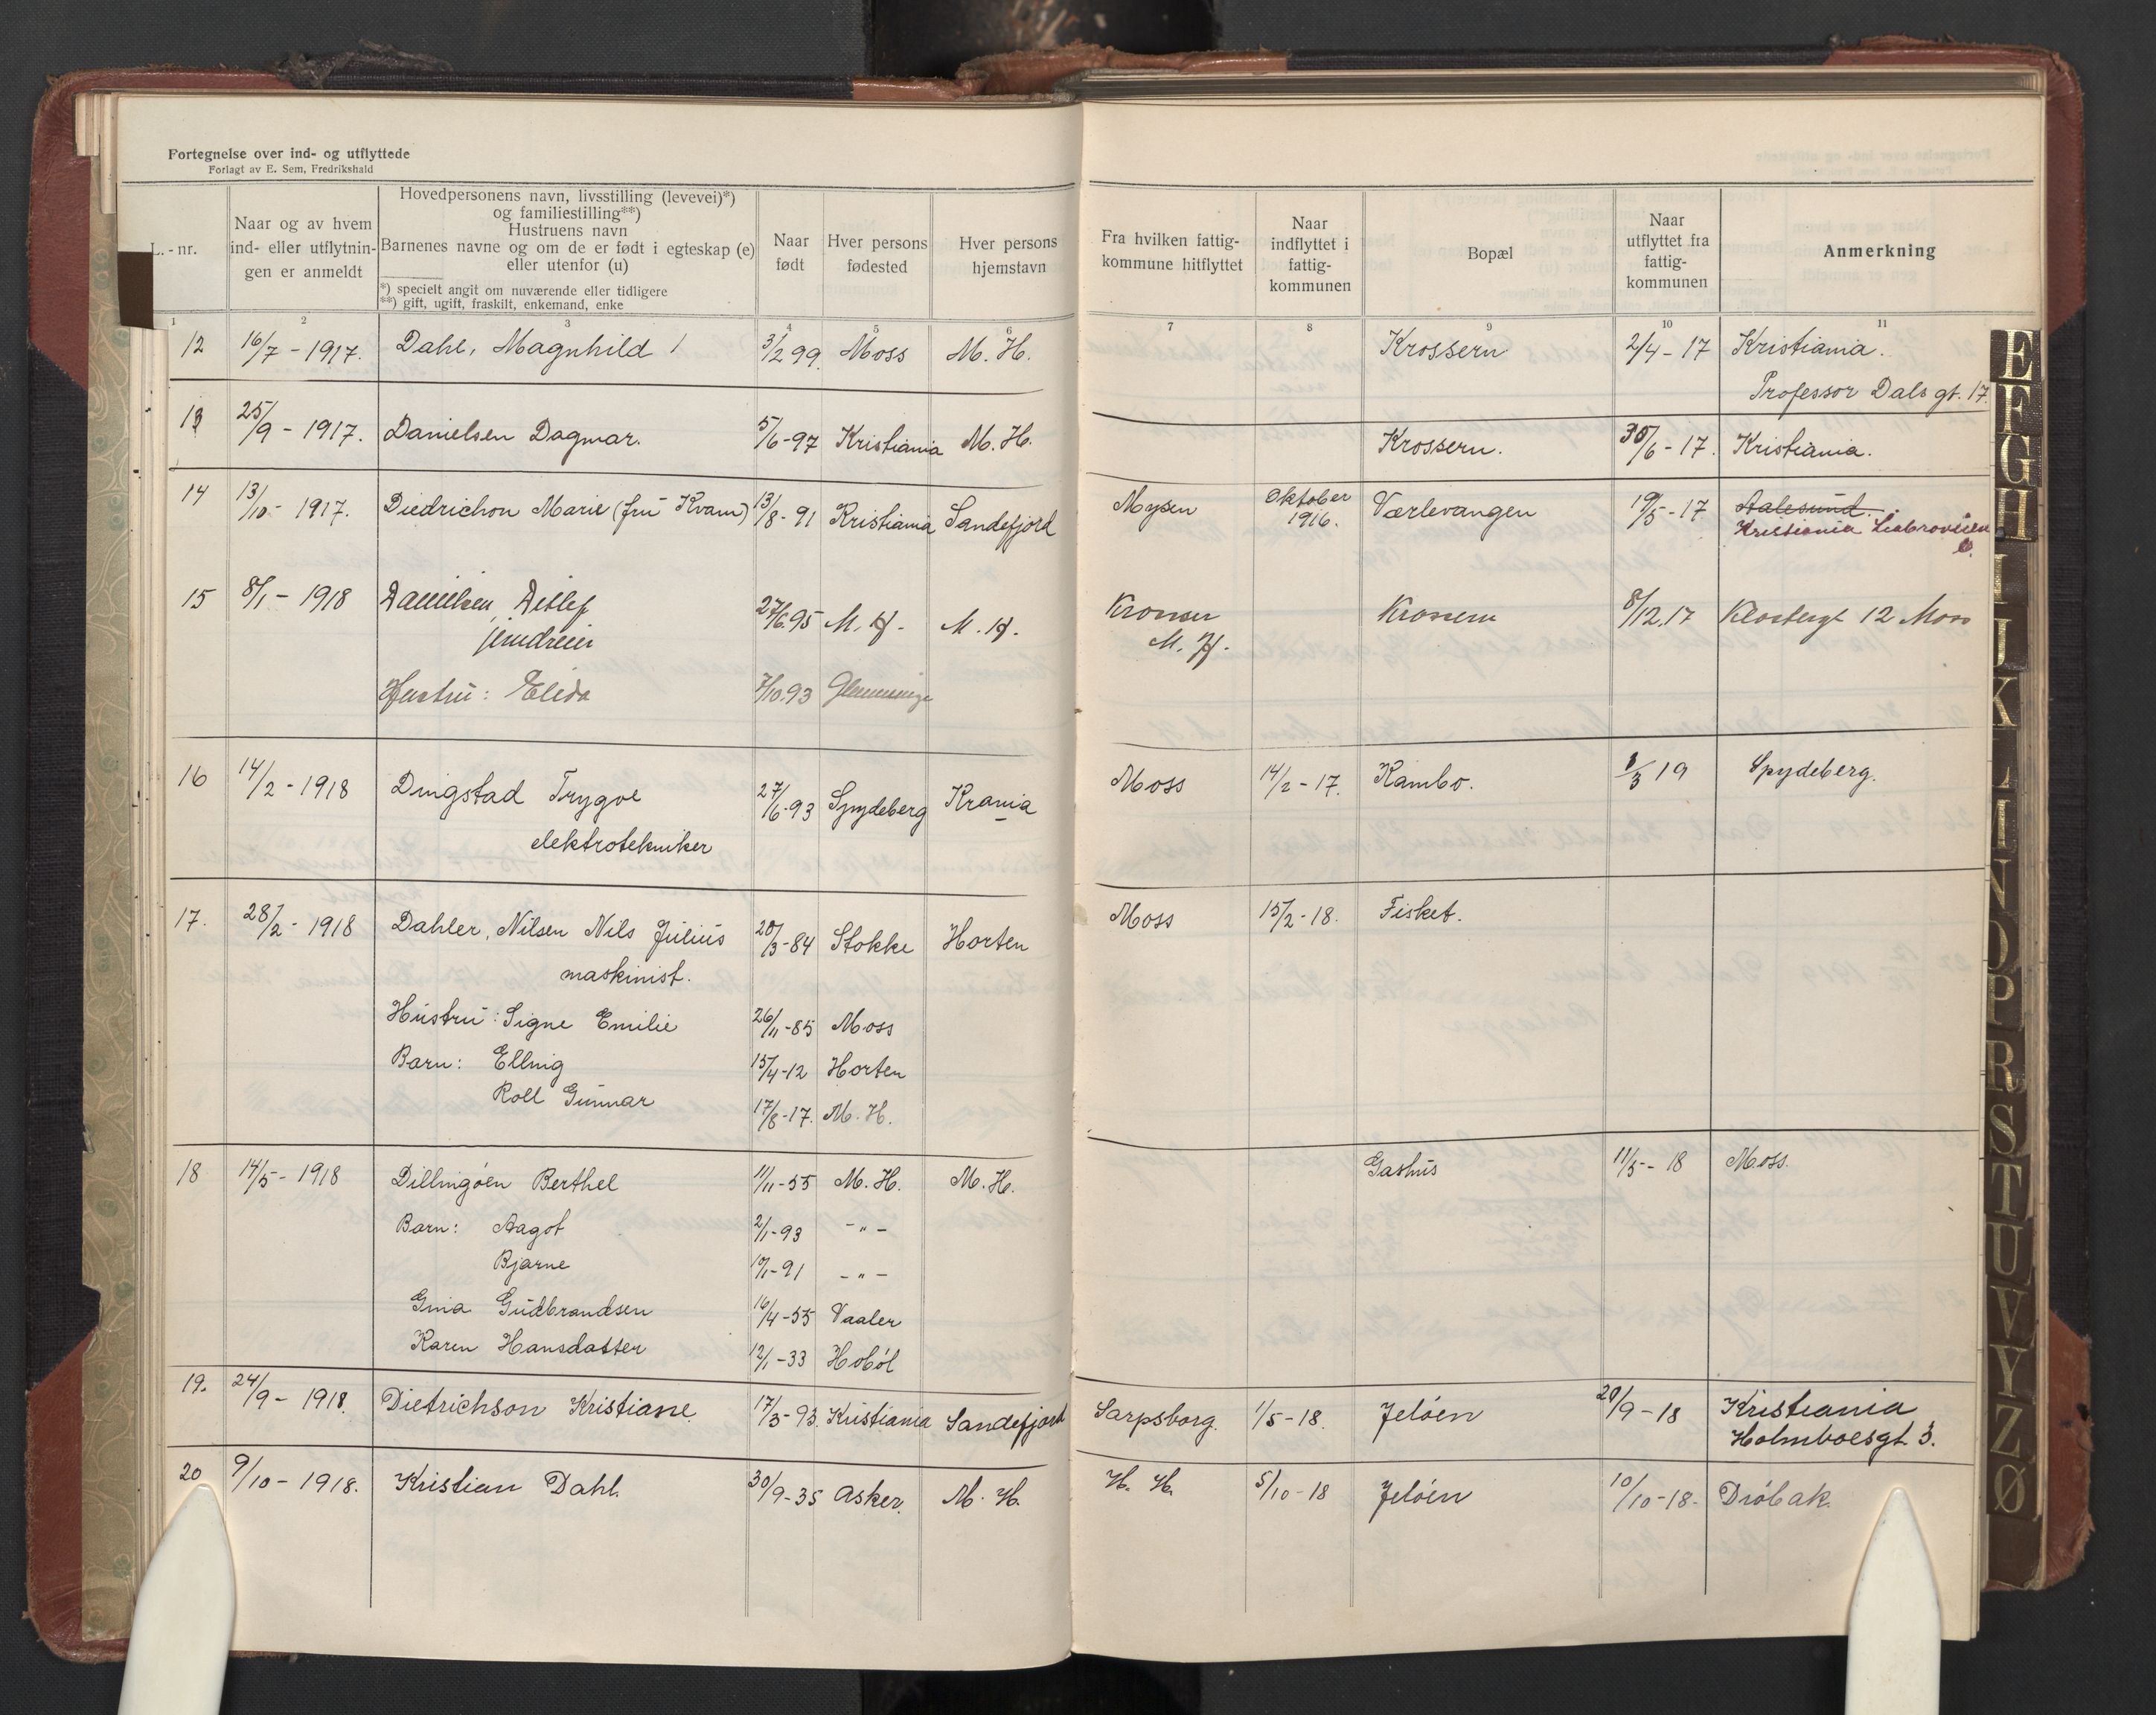 Fortegnelse over ind- og utflyttede
Forlagt av E. Sem, Fredrikshald
L.-nr.
Naar og av hvem
ind- eller utflytnin-
gen er anmeldt
Hovedpersonens navn, livsstilling (levevei)*)
og familiestilling**)
Hustruens navn
Barnenes navne og om de er født i egteskap (e)
eller utenfor (u)
*) specielt angit om nuværende eller tidligere
**) gift, ugift, fraskilt, enkemand, enke
Naar
født
Hver persons
fødested
Hver persons
hjemstavn
Fra hvilken fattig-
kommune hitflyttet
Naar
indflyttet i
fattig-
kommunen
Bopæl
Naar
utflyttet fra
fattig-
kommunen
Anmerkning
1 2 3 4 5 6 7 8 9 10 11
12 16/7 - 1917. Dahl, Magnhild 3/2 99. Moss M. H. Krossern 2/4 - 17 Kristiania.
Professor Dals gt. 17.
13 25/9 - 1917. Danielsen Dagmar. 5/6-97 Kristiania M. H. Krossern. 30/6 - 17. Kristiania.
14 13/10 - 1917. Diedrichon Marie (fru Kvam) 13/8 - 91 Kristiania Sandefjord Mysen Oktober 1916. Værlevangen 19/5 - 17 Aalesund.
Kristiania Liabroveien
15 8/1 - 1918 Danielsen, Detlef 27/6.95 M. H. M. H. Krosser M. H. Krossern 8/12.17 Klostergt 12 Moss
jerndreier
Hustru: Elida 7/10.93 Glemminge
16 14/2 - 1918 Dingstad Trygve 27/6-93 Spydeberg Krania Moss 14/2 - 17. Kambo. 1/3 19 Spydeberg.
elektrotekniker
17. 28/2 - 1918 Dahler, Nilsen Nils Julius 20/3-84 Stokke Horten Moss 15/2 - 18. Fisket.
maskinist.
Hustru: Signe Emilie 26/11-85 Moss
Barn: Elling 15/4-12 Horten
Rolf Gunnar 17/8-17. M. H.
18 14/5 - 1918 Dillingøen Berthel 11/11-55 M. H. M. H. Gashus 11/5 - 18 Moss.
Barn: Aagot 2/1-93 - " -
Bjarne 10/1-91 - " -
Gina Gudbrandsen 16/4-55 Vaaler
Karen Hansdatter 12/1-33 Hobøl
19. 24/9 - 1918. Dietrichson Kristiane. 17/3-93. Kristiania Sandefjord Sarpsborg. 1/5-18. Jeløen 20/9 - 18 Kristiania
Holmboesgt 3.
20 9/10 - 1918. Kristian Dahl. 30/9-35 Asker. M. H. H. H. 5/10-18 Jeløen 10/10-18. Drøbak.
E
F
G
H
I
J
K
L
M
N
O
P
R
S
T
U
V
Y
Z
Ø